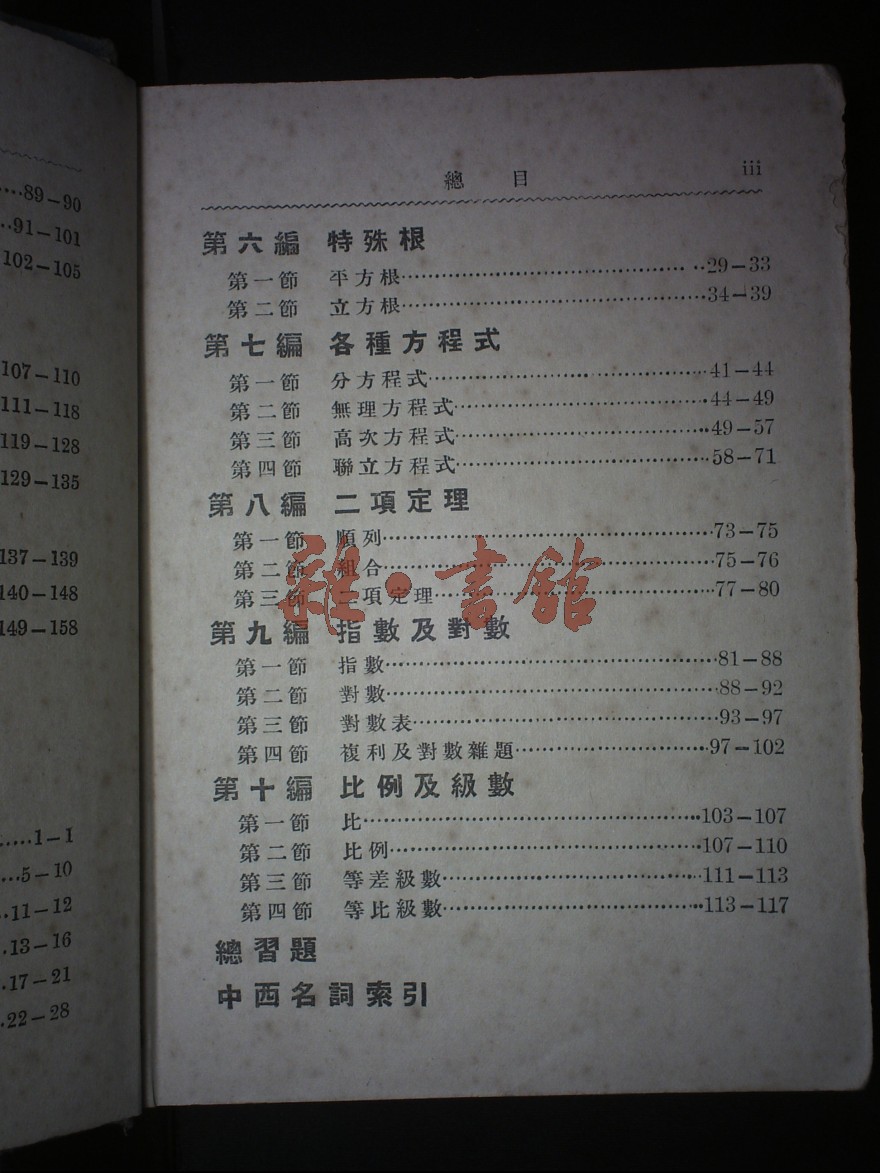 89－90
91－101
102－105
107－110
111－118
119－128
129－135
137－139
140－148
149－158
1－1
5－10
11－12
13－16
17－21
22－28
總目 iii
第六編 特殊根
第一節 平方根 29－33
第二節 立方根 34－39
第七編 各種方程式
第一節 分方程式 41－44
第二節 無理方程式 44－49
第三節 高次方程式 49－57
第四節 聯立方程式 58－71
第八編 二項定理
第一節 順列 73－75
第二節 組合 75－76
第三節 二項定理 77－80
雜·書館
第九編 指數及對數
第一節 指數 81－88
第二節 對數 88－92
第三節 對數表 93－97
第四節 複利及對數雜題 97－102
第十編 比例及級數
第一節 比 103－107
第二節 比例 107－110
第三節 等差級數 111－113
第四節 等比級數 113－117
總習題
中西名詞索引